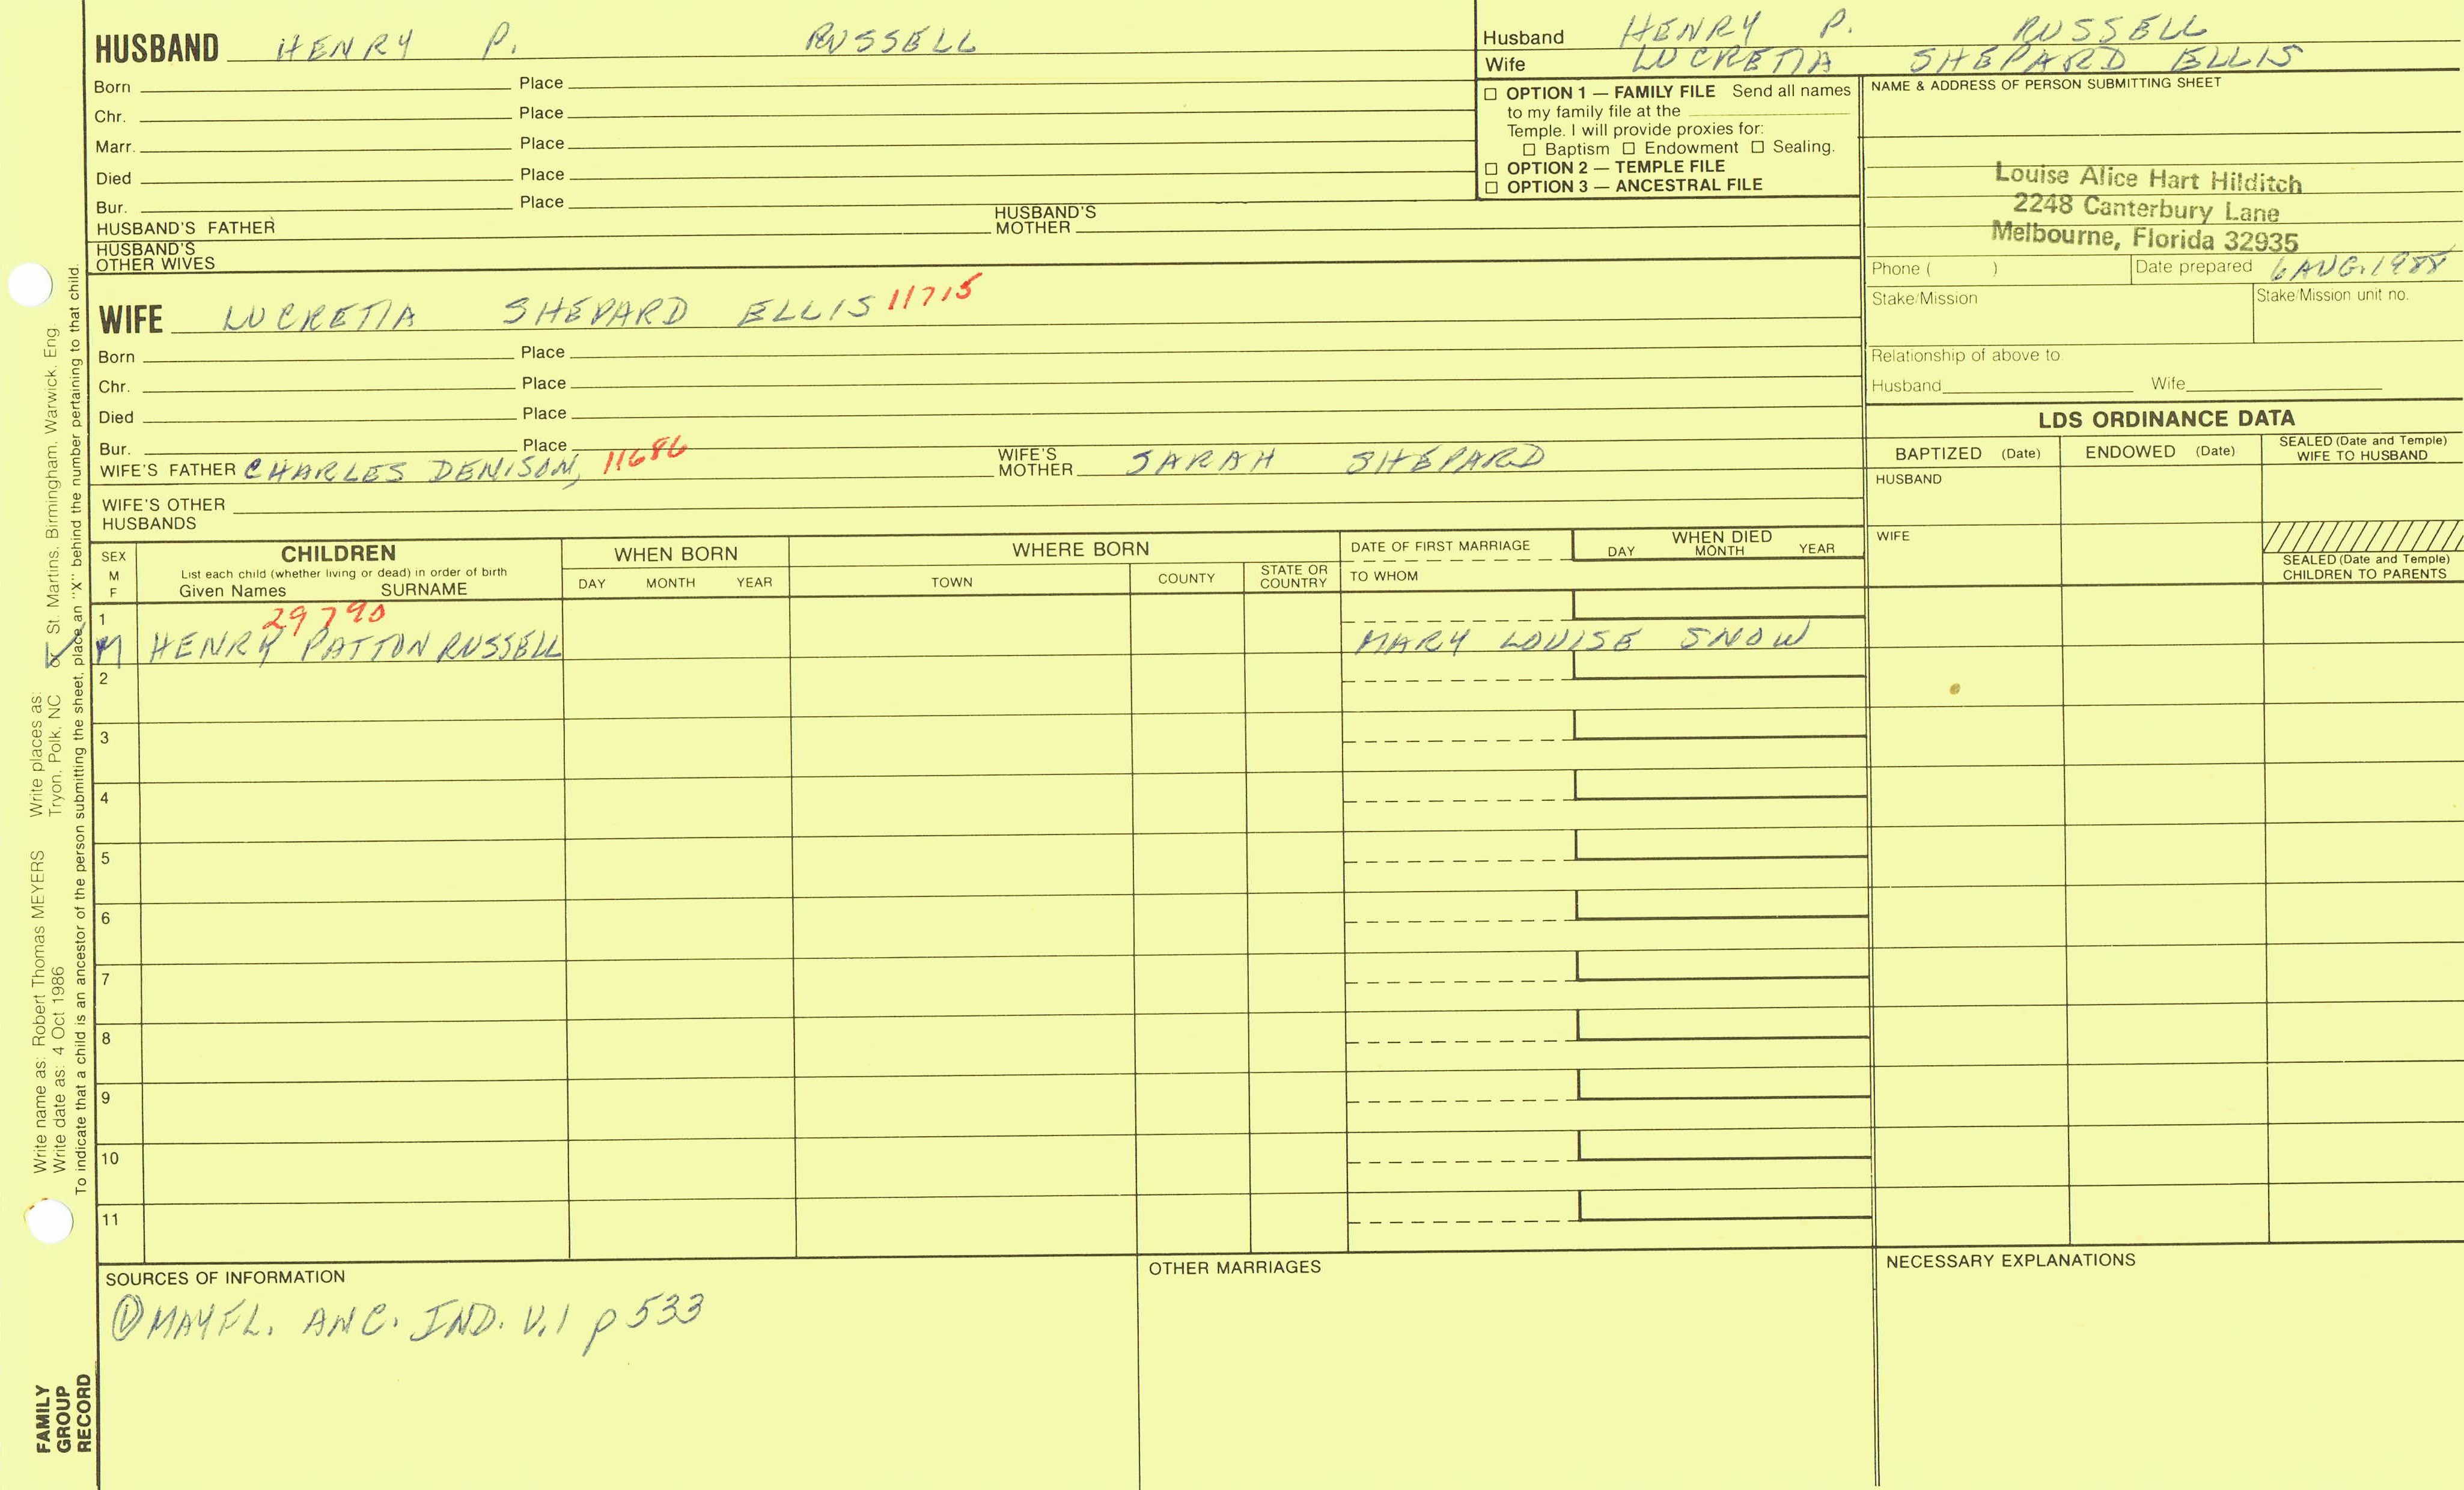 HUSBAND HENRY P. RUSSELL
Born Place
Chr. Place
Marr. Place
Died Place
Bur. Place
HUSBAND'S FATHER HUSBAND'S MOTHER
HUSBAND'S OTHER WIVES
Husband HENRY P. RUSSELL
Wife LUCRETIA SHEPARD ELLIS
OPTION 1 — FAMILY FILE Send all names
to my family file at the
Temple. I will provide proxies for:
Baptism Endowment Sealing.
OPTION 2 — TEMPLE FILE
OPTION 3 — ANCESTRAL FILE
NAME & ADDRESS OF PERSON SUBMITTING SHEET
Louise Alice Hart Hilditch
2248 Canterbury Lane
Melbourne, Florida 32935
Phone ( ) Date prepared 6 AUG. 1988
Stake/Mission Stake/Mission unit no.
Relationship of above to
Husband Wife
WIFE LUCRETIA SHEPARD ELLIS 11715
Born Place
Chr. Place
Died Place
Bur. Place
WIFE'S FATHER CHARLES DENISON, 11686 WIFE'S MOTHER SARAH SHEPARD
WIFE'S OTHER HUSBANDS
LDS ORDINANCE DATA
BAPTIZED (Date) ENDOWED (Date) SEALED (Date and Temple) WIFE TO HUSBAND
HUSBAND
WIFE
SEALED (Date and Temple) CHILDREN TO PARENTS
SEX M F
CHILDREN
List each child (whether living or dead) in order of birth
Given Names SURNAME
WHEN BORN
DAY MONTH YEAR
WHERE BORN
TOWN COUNTY STATE OR COUNTRY
DATE OF FIRST MARRIAGE
TO WHOM
WHEN DIED
DAY MONTH YEAR
1 29790
M HENRY PATTON RUSSELL MARY LOUISE SNOW
2
3
4
5
6
7
8
9
10
11
SOURCES OF INFORMATION
① MAYFL. ANC. IND. V.1 p 533
OTHER MARRIAGES
NECESSARY EXPLANATIONS
Write name as: Robert Thomas MEYERS Write places as:
Write date as: 4 Oct 1986 Tryon, Polk, NC or St. Martins, Birmingham, Warwick, Eng.
To indicate that a child is an ancestor of the person submitting the sheet, place an "X" behind the number pertaining to that child.
FAMILY
GROUP
RECORD